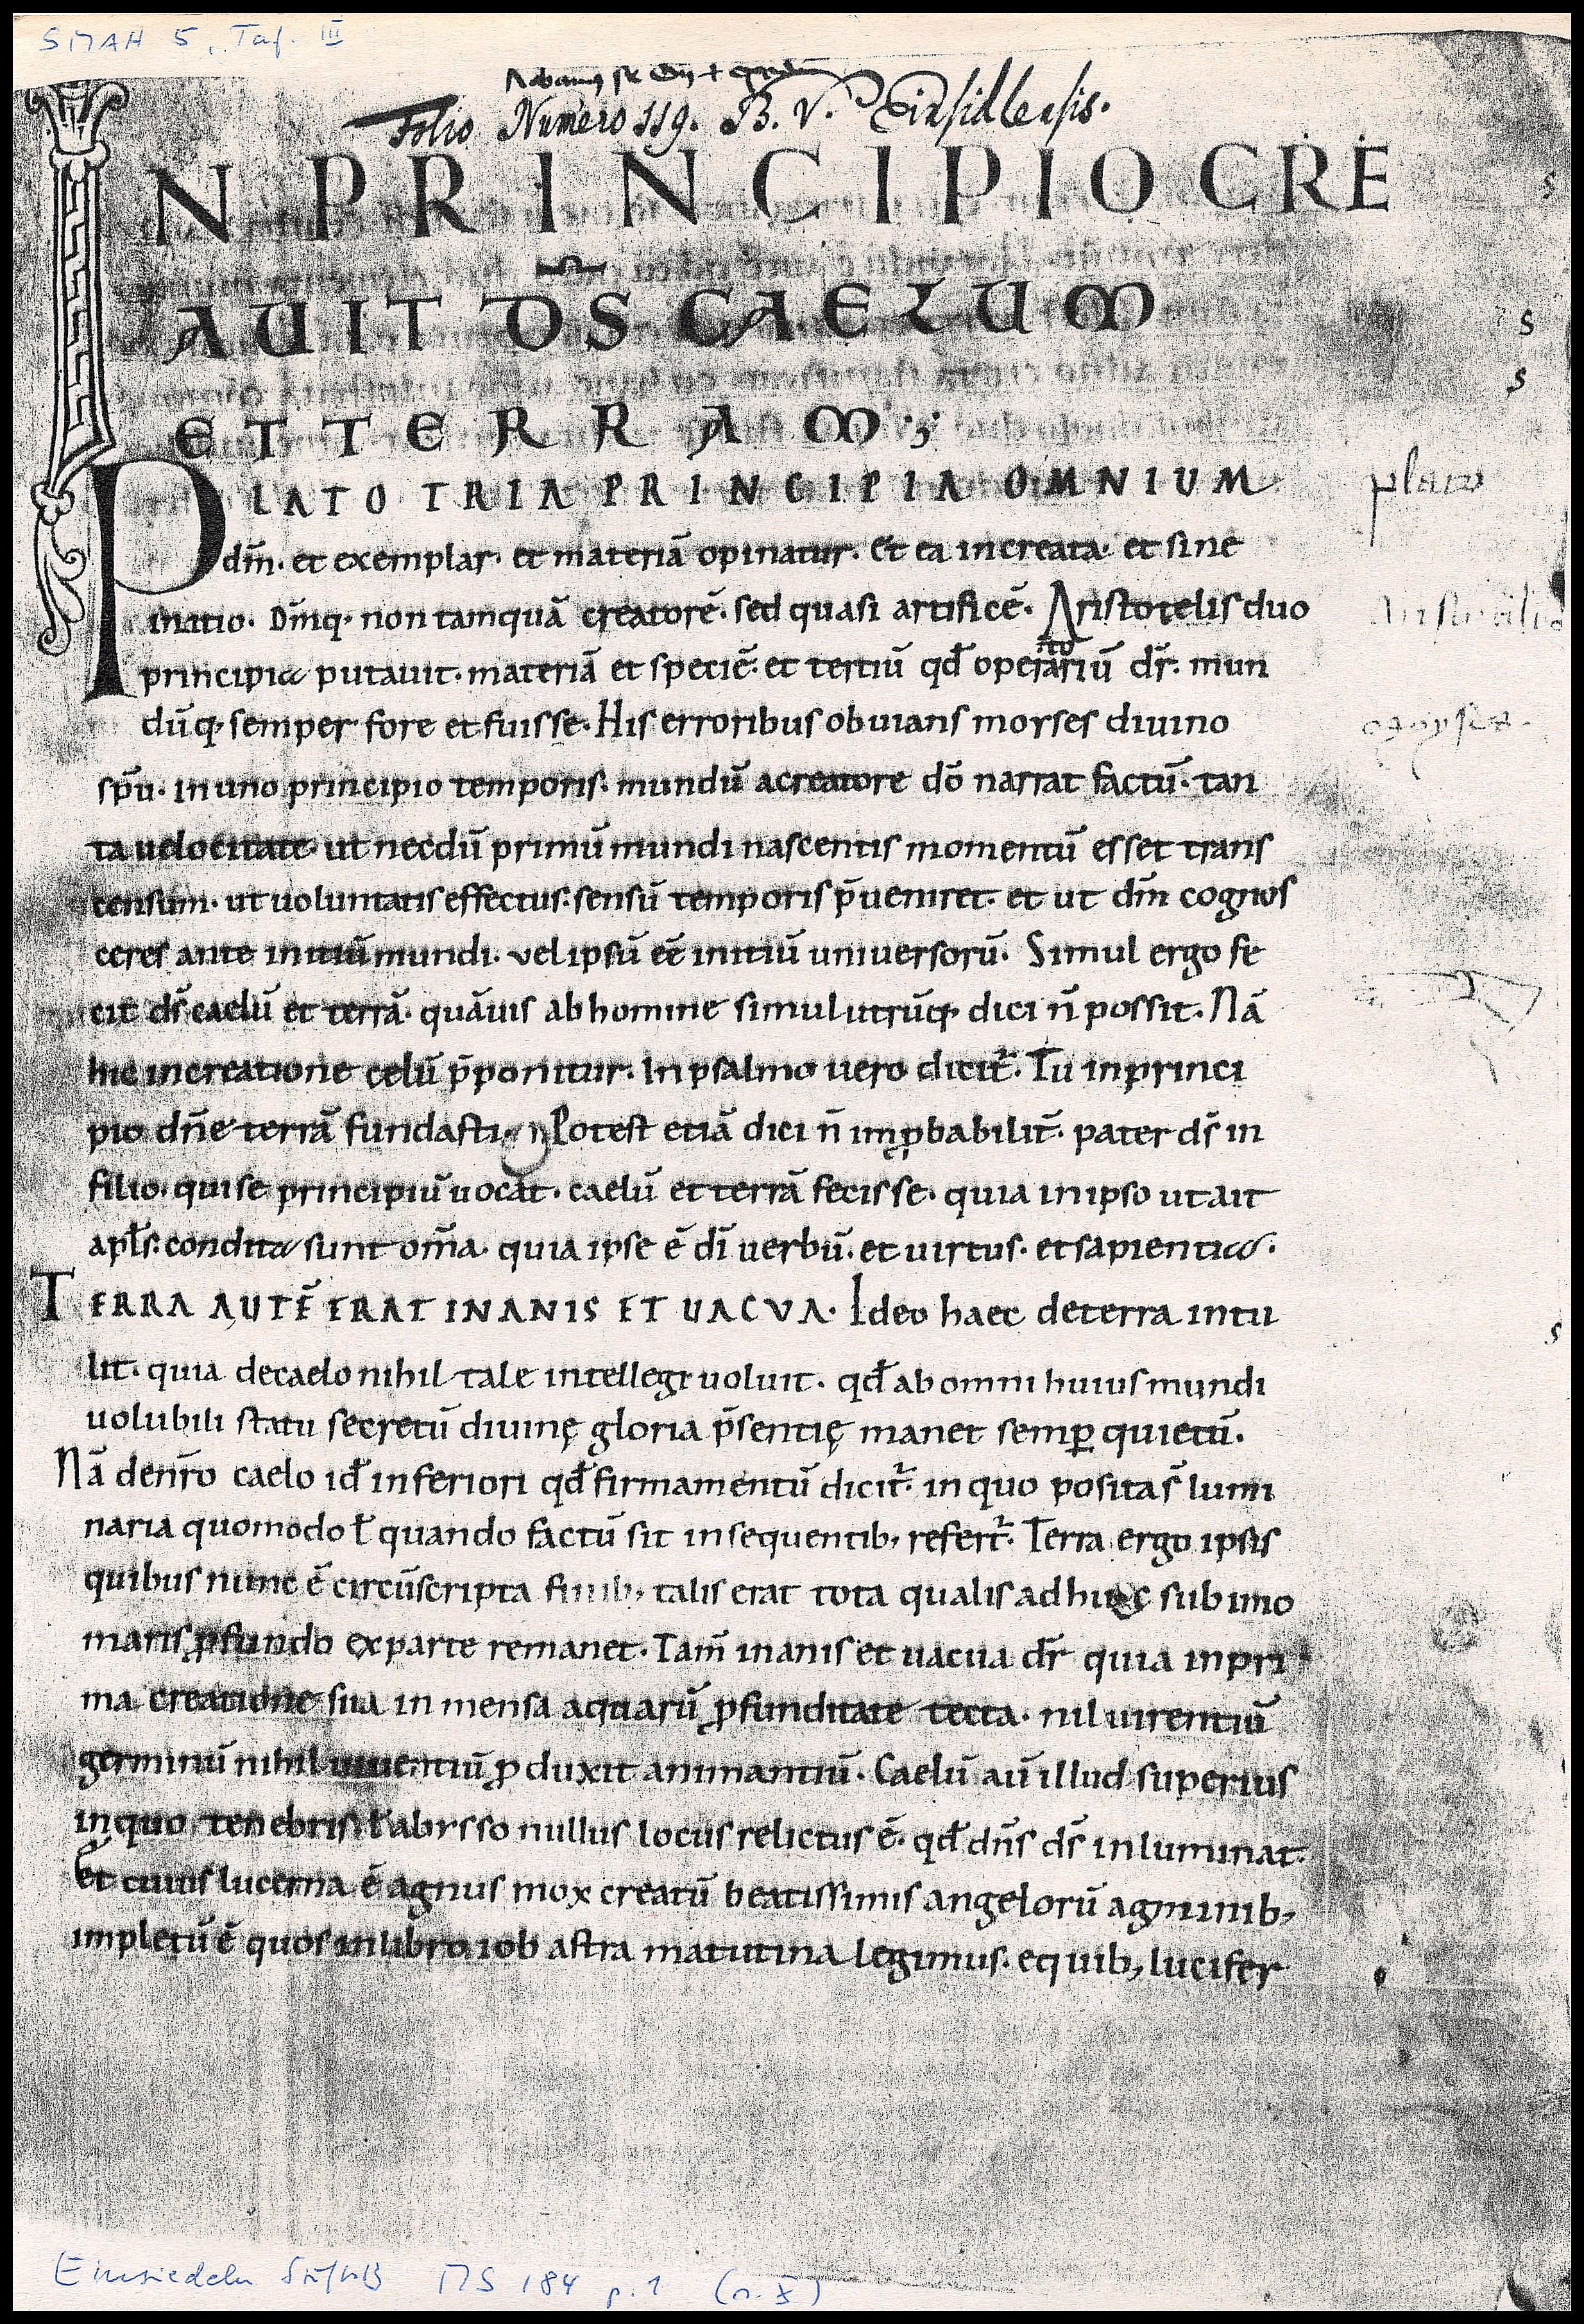 SMAH 5, Taf. III
Folio Numero 559. B. V. Einsidlensis.
IN PRINCIPIO CRE
AVIT D̅S CAELUM
ET TERRAM·;
PLATO TRIA PRINCIPIA OMNIUM
dm̄· et exemplar· et materiā opinatur· Et ea increata· et sine
initio· Dm̄q· non tamquā creatorē· sed quasi artificē· Aristotelis duo
principia putauit· materiā et speciē· et tertiū qđ operariū dr̄· mun
dūq· semper fore et fuisse· His erroribus obuians moyses diuino
sp̄u· in uno principio temporis· mundū a creatore dō narrat factū· tan
ta uelocitate· ut necdū primū mundi nascentis momentū esset trans
censum· ut uoluntatis effectus· sensū temporis p̄ueniret· et ut dm̄ cognos
ceres ante initiū mundi· vel ipsū eē initiū universorū· Simul ergo fe
cit ds̄ caelū et terrā· quāuis ab homine simul utrūq· dici n̄ possit· Nā
hic in creatione celū p̄ponitur· In psalmo uero dicit᷒· Tu in princi
pio dn̄e terrā fundasti· Potest etiā dici n̄ imꝓbabilit̄· pater ds̄ in
filio· qui se principiū uocat· caelū et terrā fecisse· quia in ipso ut ait
apl̄s· condita sunt om̄a· quia ipse ē dī uerbū· et uirtus· et sapientia·
TERRA AUTĒ ERAT INANIS ET UACVA· Ideo haec de terra intu
lit· quia de caelo nihil tale intellegi uoluit· qđ ab omni huius mundi
uolubili statu secretū diuinę gloria p̄sentię manet semꝑ quietū·
Nā de nr̄o caelo id inferiori qđ firmamentū dicit᷒· in quo posita s̄ lumi
naria quomodo ł quando factū sit in sequentib; refert᷒· Terra ergo ipsis
quibus nunc ē circūscripta finib; talis erat tota qualis adhuc sub imo
maris ꝓfundo ex parte remanet· Tam̄ inanis et uacua dr̄ quia in pri
ma creatione sua inmensa aquarū ꝓfunditate tecta· nil uirentiū
germinū nihil uiuentiū ꝓduxit animantiū· Caelū aū illud superius
in quo tenebris ł abysso nullus locus relictus ē· qđ dn̄s ds̄ inluminat·
Et cuius lucerna ē agnus mox creatū beatissimis angelorū agminib;
impletū ē quos in libro iob astra matutina legimus· e quib; lucifer
plato
Aristotilis
s
s
s
s
Einsiedeln StiftsB MS 184 p. 1 (s. X)